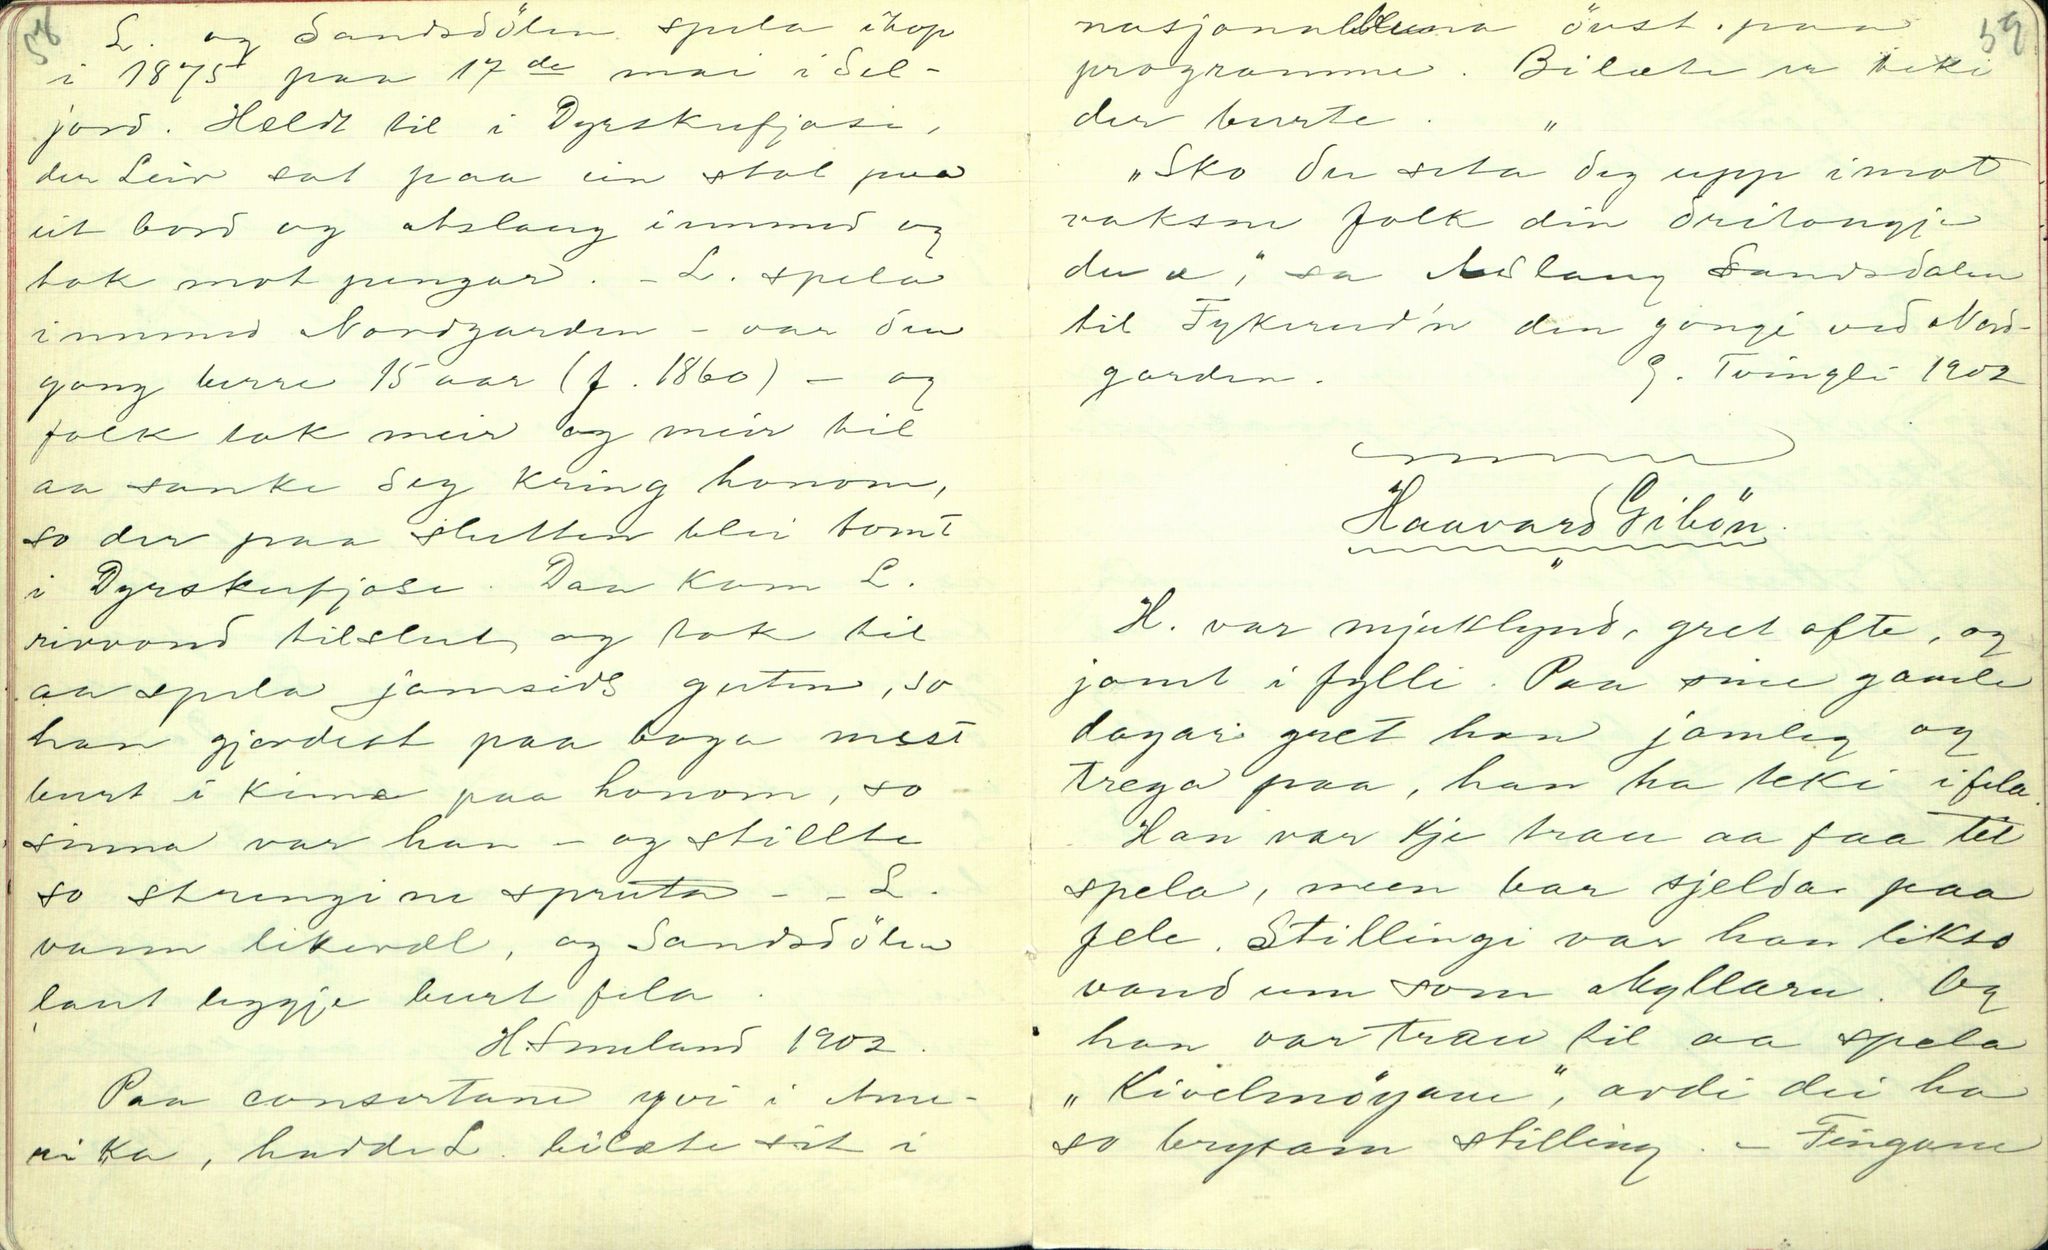 58
L. og Sandsdölen spela ihop
i 1875 paa 17de mai i Sel-
jord. Heldt til i Dyrskufjøsi,
der Leiv sat paa ein stol paa
eit bord og Aslaug innmed og
tok mot pengar. – L. spela
innmed Nordgarden – var den
gong berre 15 aar (f. 1860) – og
folk tok meir og meir til
aa sanke seg kring honom,
so der paa slutten blei tomt
i Dyrskufjøsi. Daa kom L.
rivvond tilslut, og tok til
aa spela jamsids guten, so
han gjordest paa boga mest
burt i kinne paa honom, so
sinna var han – og stillte
so strengine spruta – – L.
vann likevæl, og Sandsdölen
laut leggje burt fela.
H. Smeland 1902.
Paa consertane yvi i Ame-
rika, hadde L. bilæte sit i
59
nasjonalbluna övst paa
programme. Bilæte er teki
der burte. "
"Sko du seta deg upp imot
vaksne folk din dritongje
du æ," sa Aslaug Sandsdalen
til Fykerud'n den gongi ved Nord-
garden. G. Tvingli 1902
Haavard Gibön.
H. var mjuklynd, gret ofte, og
jamt i fylli. Paa sine gamle
dagar gret han jamleg og
trega paa, han ha teki i fela.
Han var kje trau aa faa til
spela, men bar sjelda paa
fele. Stillingi var han likso
vand um som Myllaren. Og
han var trau til aa spela
"Kivelmöyane", avdi dei ha
so brysam stilling. – Fingane